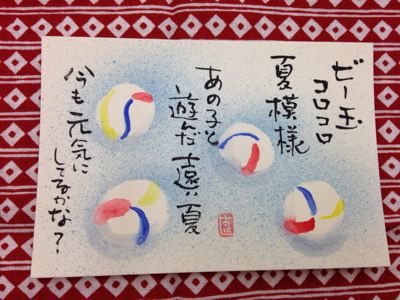 ビー玉
コロコロ
夏模様
あの子と
遊んだ遠い夏
今も元気に
してるかな？